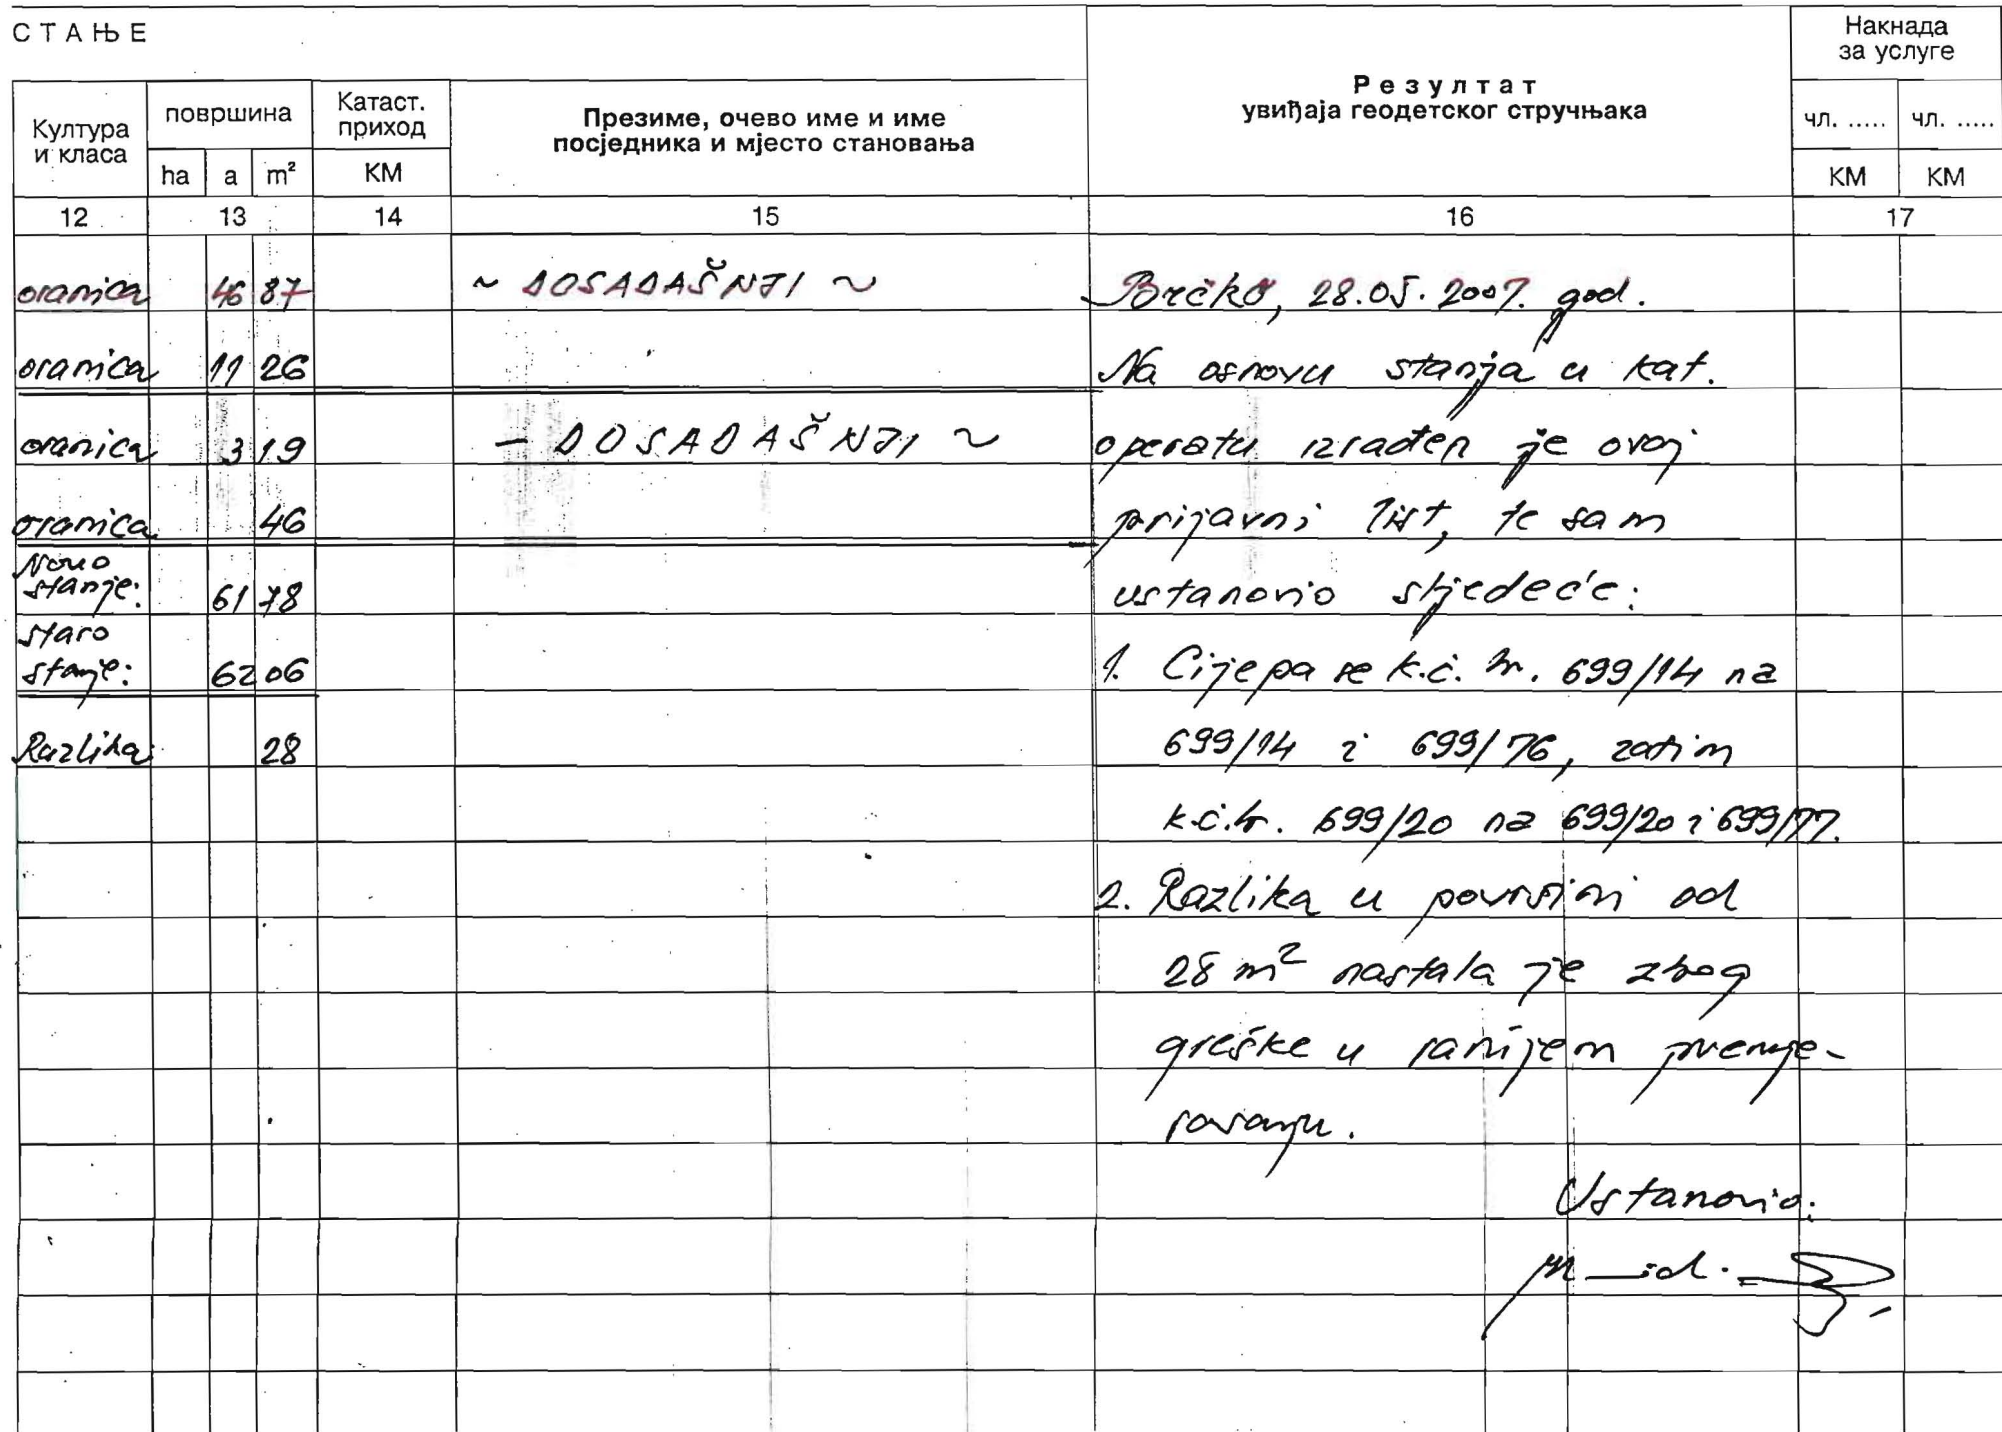 СТАЊЕ
Накнада
за услуге
Култура
и класа
површина
Катаст.
приход
Презиме, очево име и име
посједника и мјесто становања
Резултат
увиђаја геодетског стручњака
чл. ..... чл. .....
ha a m² КМ КМ КМ
12 13 14 15 16 17
oranica 46 87 ~ DOSADAŠNJI ~ Brčko, 28.05.2007. god.
oranica 11 26 Na osnovu stanja u kat.
oranica 3 19 — DOSADAŠNJI ~ operatu izrađen je ovaj
oranica 46 prijavni list, te sam
Novo
stanje: 61 78 ustanovio sljedeće:
staro
stanje: 62 06 1. Cijepa se k.č. br. 699/14 na
Razlika: 28 699/14 i 699/76, zatim
k.č.br. 699/20 na 699/20 i 699/77.
2. Razlika u površini od
28 m² nastala je zbog
greške u ranijem premje-
ravanju.
Ustanovio: